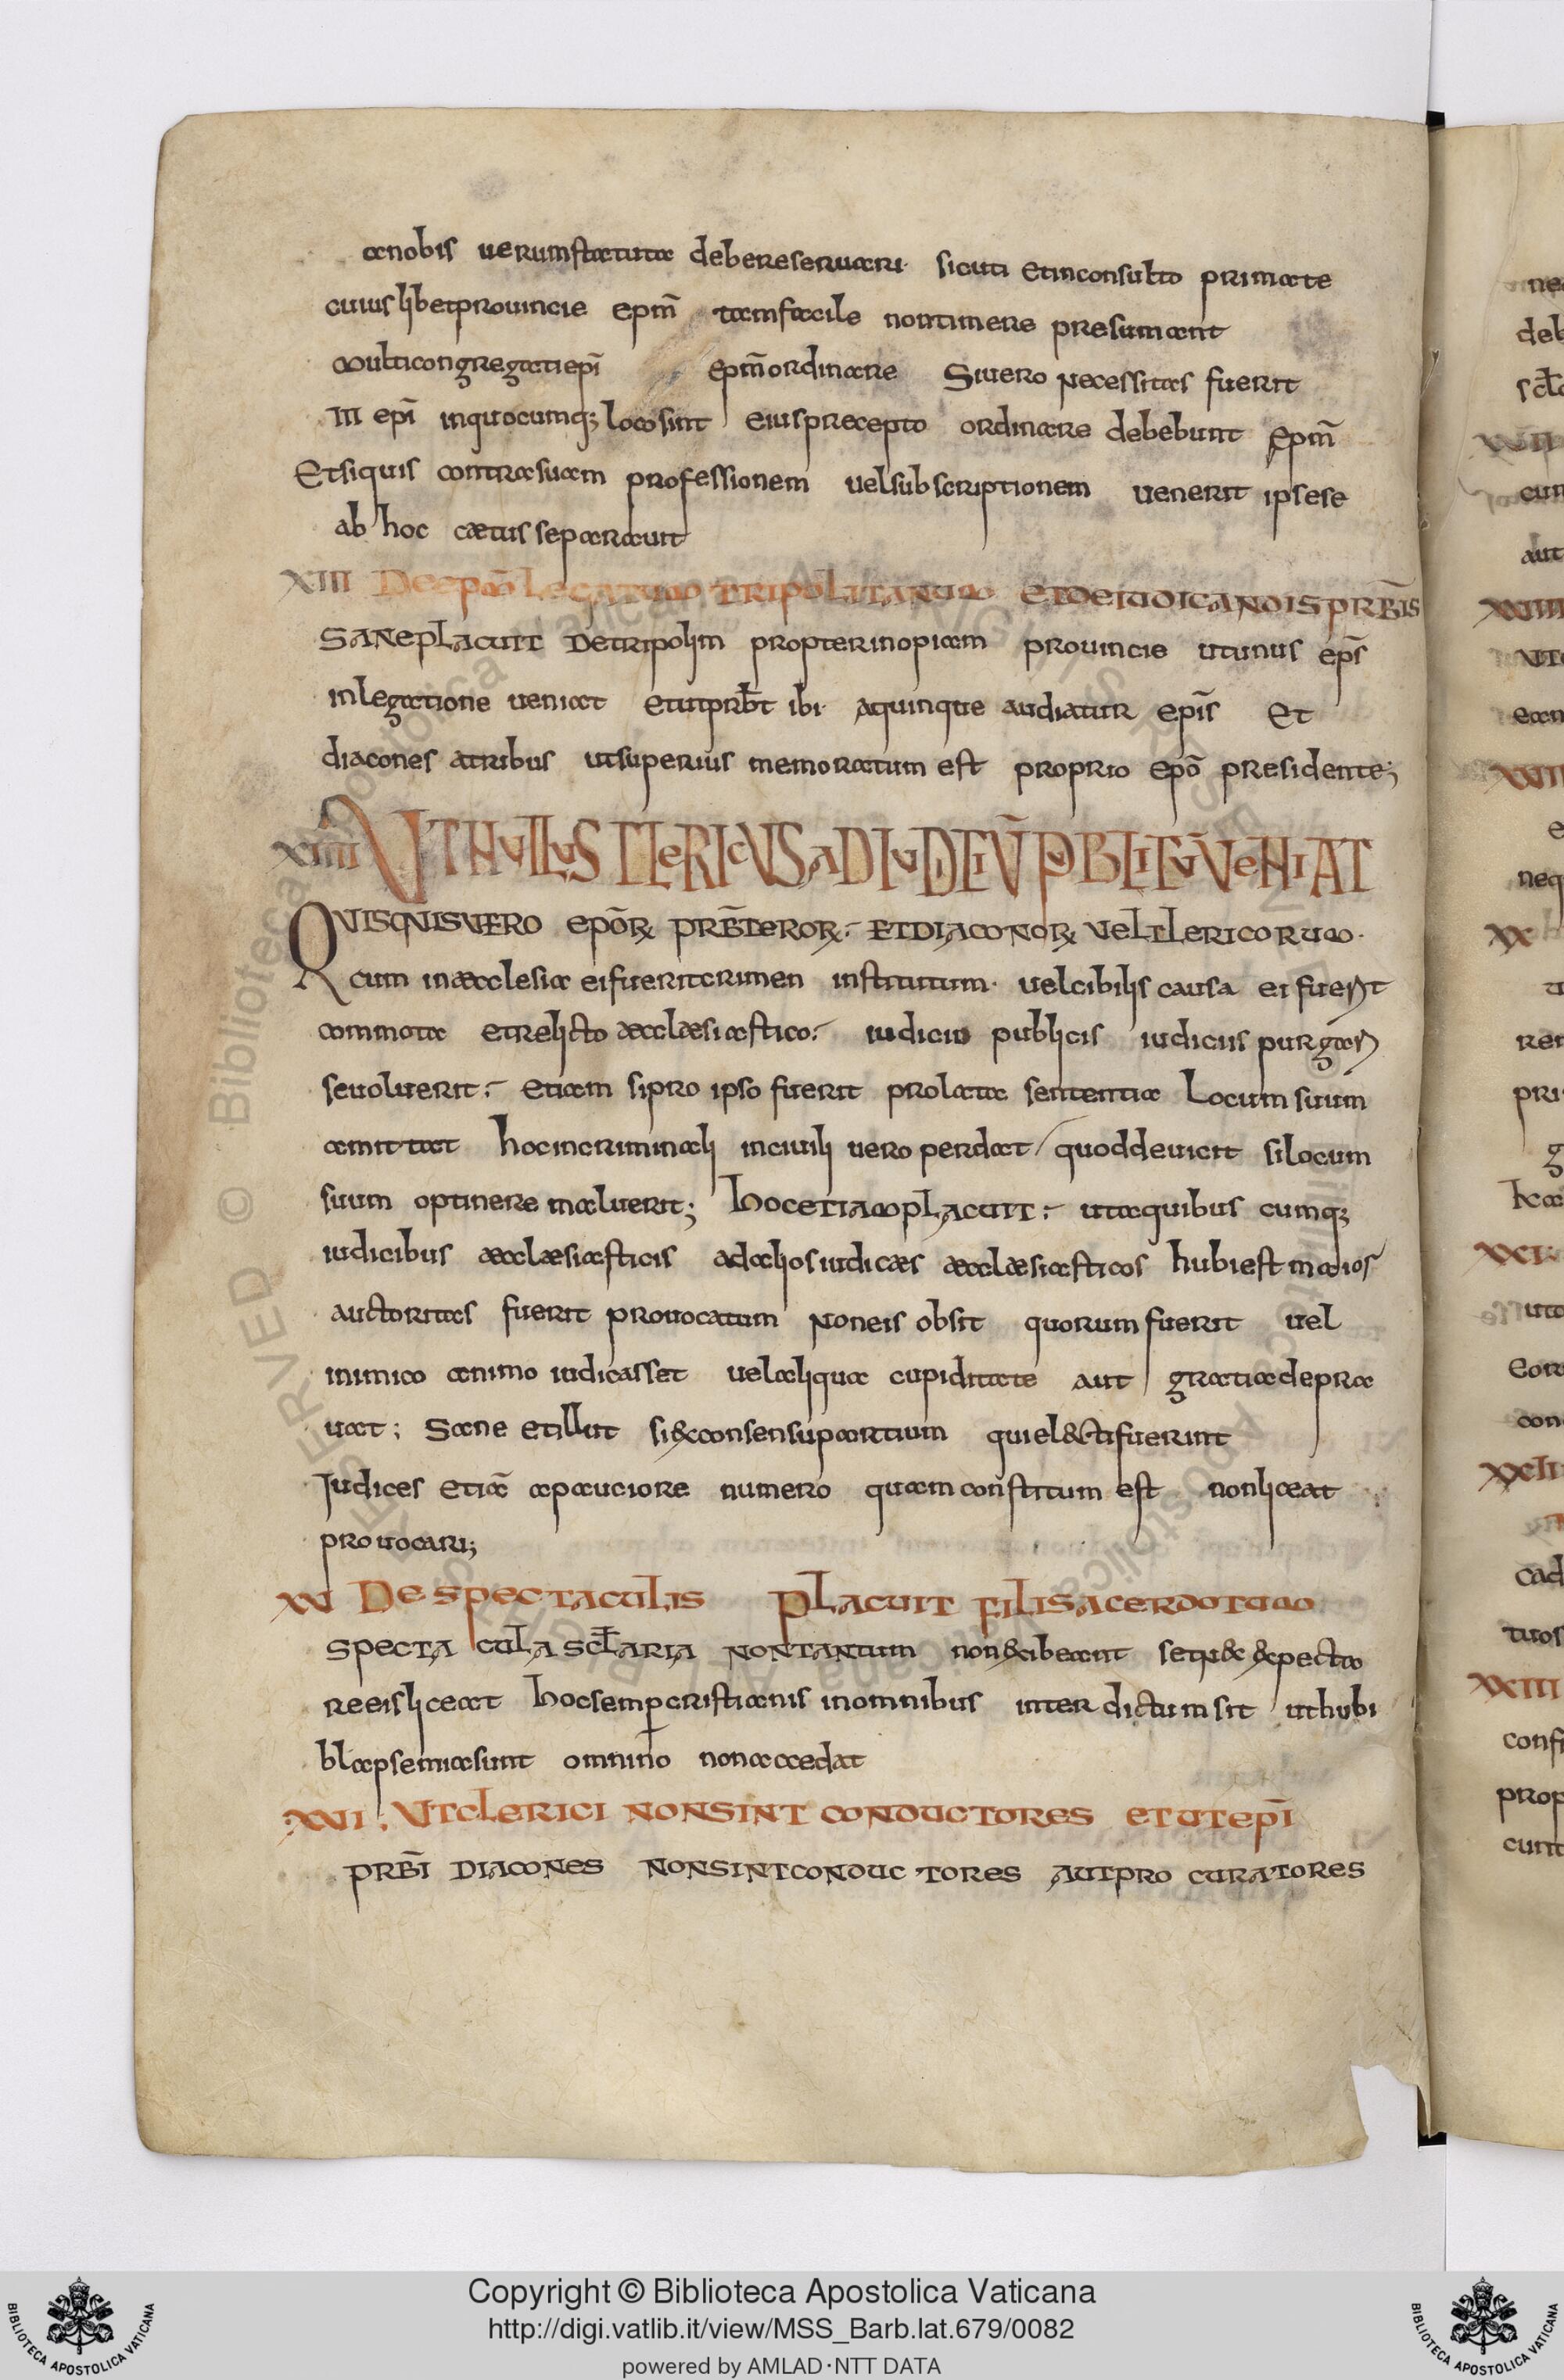 anobis uerumstatuta debereseruari· sicuti etinconsulto primate
cuiuslibetprouincie ep̄m tamfacile nontimere presumant
multicongregatiep̄i ep̄mordinare Siuero necessitas fuerit
III ep̄i inquocumq; locosint eiusprecepto ordinare debebunt ep̄m
Etsiquis contrasuam professionem uelsubscriptionem uenerit ipsese
ab hoc cætus separauit
XIII DeepōLegatum TRIPOLITANUM ETDEIUDICANDISPRB̄IS
SANEPLACUIT Detripolim propterinopiam prouincie utunus ep̄s
inlegatione ueniat etutprb̄t ibi· aquinque audiatur ep̄is Et
diacones atribus utsuperius memoratum est proprio ep̄o presidente;
XIIII VTNULLUS CLERICUS ADIUDICIŪ PUBLICŪ VENIAT
QUISQUISVERO EPŌRꝝ PRB̄TERORꝝ ETDIACONORꝝ VELCLERICORUM·
cum inæcclesia eifueritcrimen institutum· uelcibilis causa ei fuerit
commota etrelicto æcclæsiastico iudicio publicis iudiciis purgari
seuoluerit etiam sipro ipso fuerit prolata sententia Locum suum
amittat hocincriminali inciuili uero perdat quoddeuicit silocum
suum optinere maluerit; HOCETIAMPLACUIT utaquibus cumq;
iudicibus æcclæsiasticis adaliosiudicæs æcclæsiasticos hubiest maior
auctoritas fuerit prouocatum Noneis obsit quorumfuerit uel
inimico animo iudicasset uelaliqua cupiditate aut gratiadepra
uat; Sane etillut si&consensupartium quiel&ctifuerint
Iudices etiā apauciore numero quamconstitum est nonliceat
prouocari;
XV De SPECTACULIS PLACUIT FILISACERDOTUM
SPECTA CULA SCLARIA NONTANTUM non&ibeant setque &pecta
reeisliceat hocsempcristianis inomnibus inter dictum sit uthubi
blapsemiasunt omnino nonaccedat
XVI; VTCLERICI NONSINT CONDUCTORES ETUTEPĪ
PRB̄I DIACONES NONSINTCONDUC TORES AUTPRO CURATORES
Copyright © Biblioteca Apostolica Vaticana
http://digi.vatlib.it/view/MSS_Barb.lat.679/0082
powered by AMLAD·NTT DATA
BIBLIOTECA APOSTOLICA VATICANA
BIBLIOTECA APOSTOLICA VATICANA